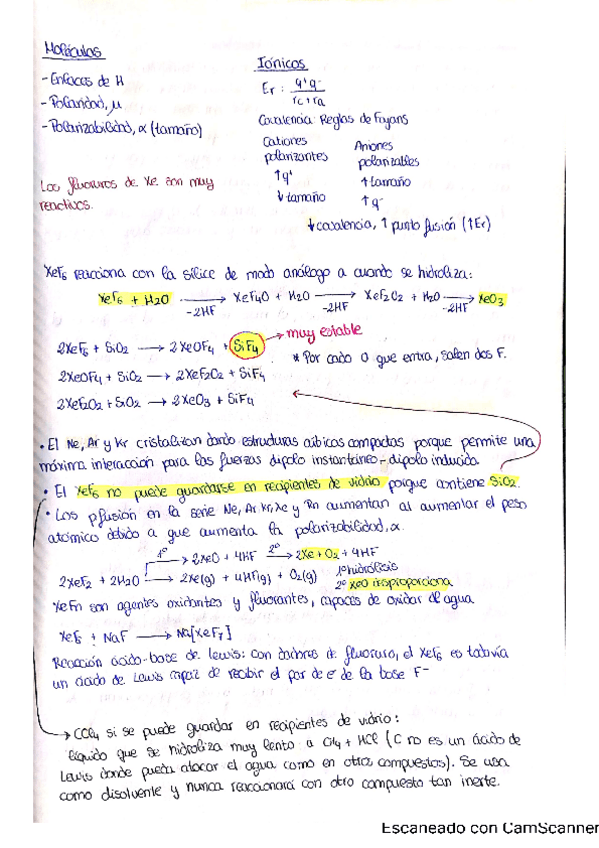 Moléculas
- Enlaces de H
- Polaridad, μ
- Polarizabilidad, α (tamaño)
Los fluoruros de Xe son muy
reactivos.
Iónicos
Er : q⁺q⁻ / rc+ra
Covalencia: Reglas de Fajans
Cationes polarizantes
↑q⁺
↓tamaño
Aniones polarizables
↑tamaño
↑q⁻
↓covalencia, ↑ punto fusión (↑Er)
XeF₆ reacciona con la sílice de modo análogo a cuando se hidroliza:
XeF₆ + H₂O → -2HF XeF₄O + H₂O → -2HF XeF₂O₂ + H₂O → -2HF XeO₃
2XeF₆ + SiO₂ → 2XeOF₄ + SiF₄ → muy estable
* Por cada O que entra, salen dos F.
2XeOF₄ + SiO₂ → 2XeF₂O₂ + SiF₄
2XeF₂O₂ + SiO₂ → 2XeO₃ + SiF₄
• El Ne, Ar y Kr cristalizan dando estructuras cúbicas compactas porque permite una
máxima interacción para las fuerzas dipolo instantáneo-dipolo inducido
• El XeF₆ no puede guardarse en recipientes de vidrio porque contiene SiO₂.
• Los pfusión en la serie Ne, Ar, Kr, Xe y Rn aumentan al aumentar el peso
atómico debido a que aumenta la polarizabilidad, α.
1º → 2XeO + 4HF 2º → 2Xe + O₂ + 4HF
2XeF₂ + 2H₂O → 2Xe(g) + 4HF(g) + O₂(g)
1º hidrólisis
2º XeO desproporciona
XeFn son agentes oxidantes y fluorantes, capaces de oxidar el agua
XeF₆ + NaF → Na[XeF₇]
Reacción ácido-base de Lewis: con dadores de fluoruro, el XeF₆ es todavía
un ácido de Lewis capaz de recibir el par de e⁻ de la base F⁻
→ CCl₄ si se puede guardar en recipientes de vidrio:
líquido que se hidroliza muy lento a CH₄ + HCl (C no es un ácido de
Lewis donde pueda atacar el agua como en otros compuestos). Se usa
como disolvente y nunca reaccionará con otro compuesto tan inerte.
Escaneado con CamScanner